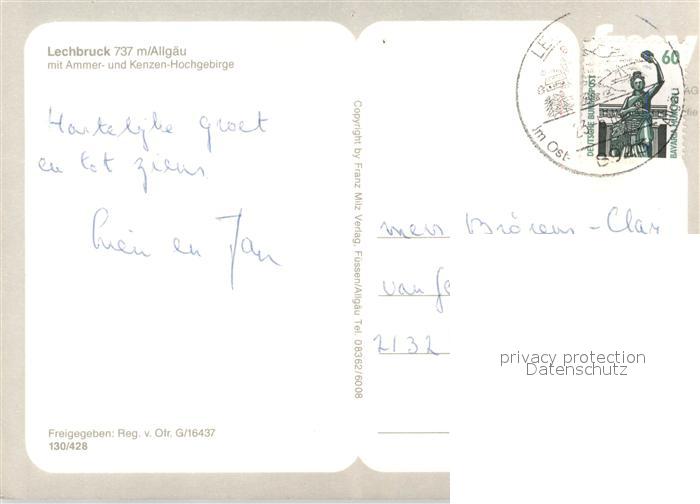 Lechbruck 737 m/Allgäu
mit Ammer- und Kenzen-Hochgebirge
Hartelijke groet
en tot ziens
en Jan
Freigegeben: Reg. v. Ofr. G/16437
130/428
Copyright by Franz Milz Verlag, Füssen/Allgäu Tel. 08362/6008
60
DEUTSCHE BUNDESPOST
BAVARIA MÜNCHEN
im Ost-
mevr
van
2132
privacy protection
Datenschutz